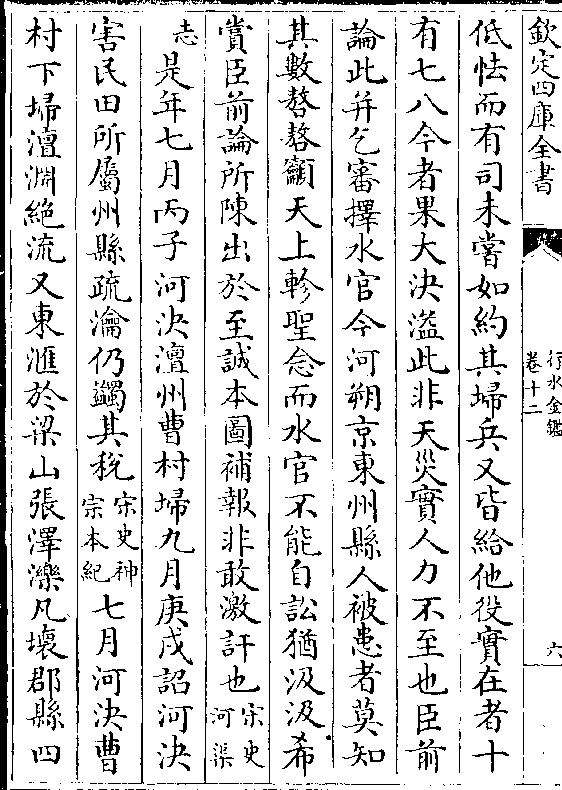 欽定四庫全書
行水金鑑
卷十二
六
低怯而有司未嘗如約其埽兵又皆給他役實在者十
有七八今者果大決溢此非天災實人力不至也臣前
論此并乞審擇水官今河朔京東州縣人被患者莫知
其數嗸嗸籲天上軫聖念而水官不能自訟猶汲汲希
賞臣前論所陳出於至誠本圖補報非敢激訐也宋史河渠
志是年七月丙子河決澶州曹村埽九月庚戌詔河決
害民田所屬州縣疏瀹仍蠲其稅宋史神宗本紀七月河決曹
村下埽澶淵絶流又東滙於梁山張澤濼凡壞郡縣四